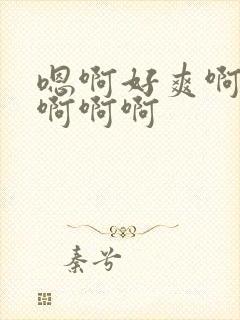 嗯啊好爽啊
啊啊啊
秦兮